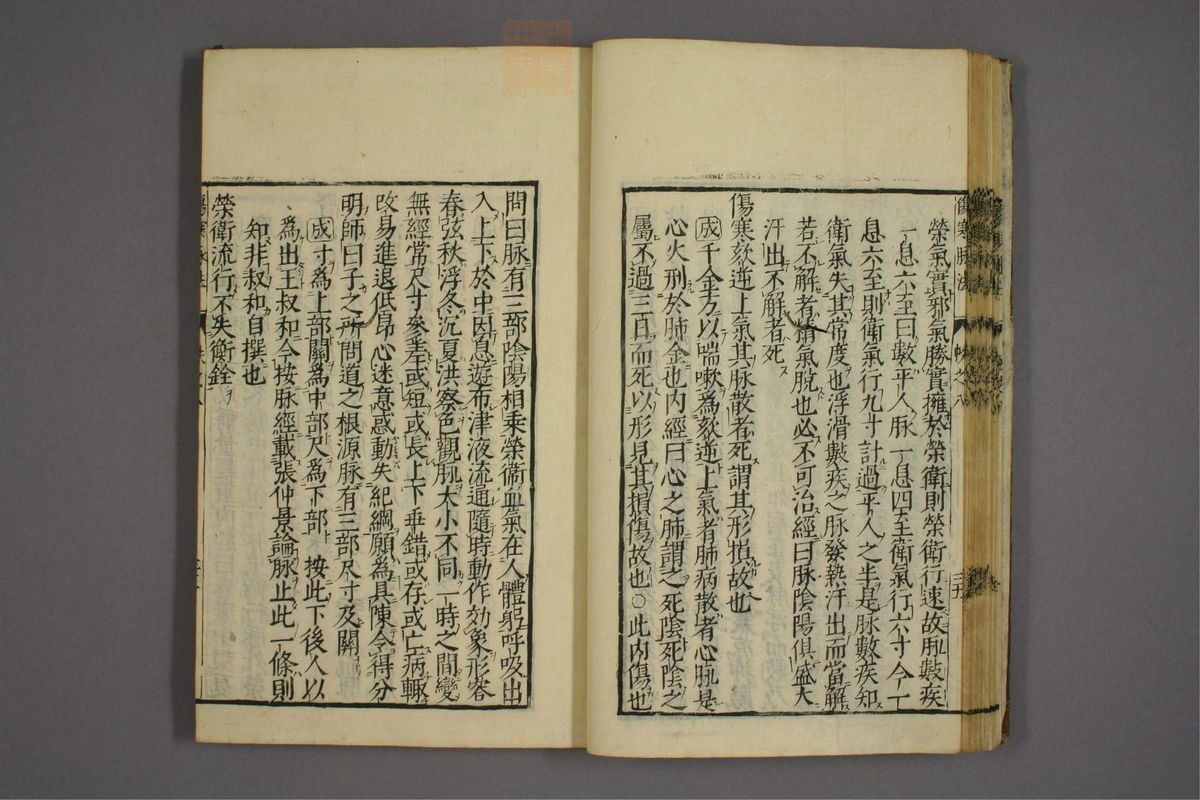 榮氣實邪氣勝實擁於榮衛則榮衛行速故脉數疾
一息六至曰數平人脉一息四至衛氣行六寸今一
息六至則衛氣行九寸計過平人之半是脉數疾知
衛氣失其常度也浮滑數疾之脉發熱汗出而當解
若不解者精氣脫也必不可治經曰脉陰陽俱盛大
汗出不解者死
傷寒欬逆上氣其脉散者死謂其形損故也
成千金方以喘嗽爲欬逆上氣者肺病散者心脉是
心火刑於肺金也內經曰心之肺謂之死陰死陰之
屬不過三日而死以形見其損傷故也○此內傷也
傷寒脉法
問曰脉有三部陰陽相乘榮衛血氣在人體躬呼吸出
入上下於中因息遊布津液流通隨時動作効象形容
春弦秋浮冬沉夏洪察色觀脉大小不同一時之間變
無經常尺寸參差或短或長上下乖錯或存或亡病輙
改易進退低昂心迷意惑動失紀綱願爲具陳令得分
明師曰子之所問道之根源脉有三部尺寸及關
成寸爲上部關爲中部尺爲下部 按此下後人以
爲出王叔和今按脉經載張仲景論脉止此一條則
知非叔和自撰也
榮衛流行不失衡銓